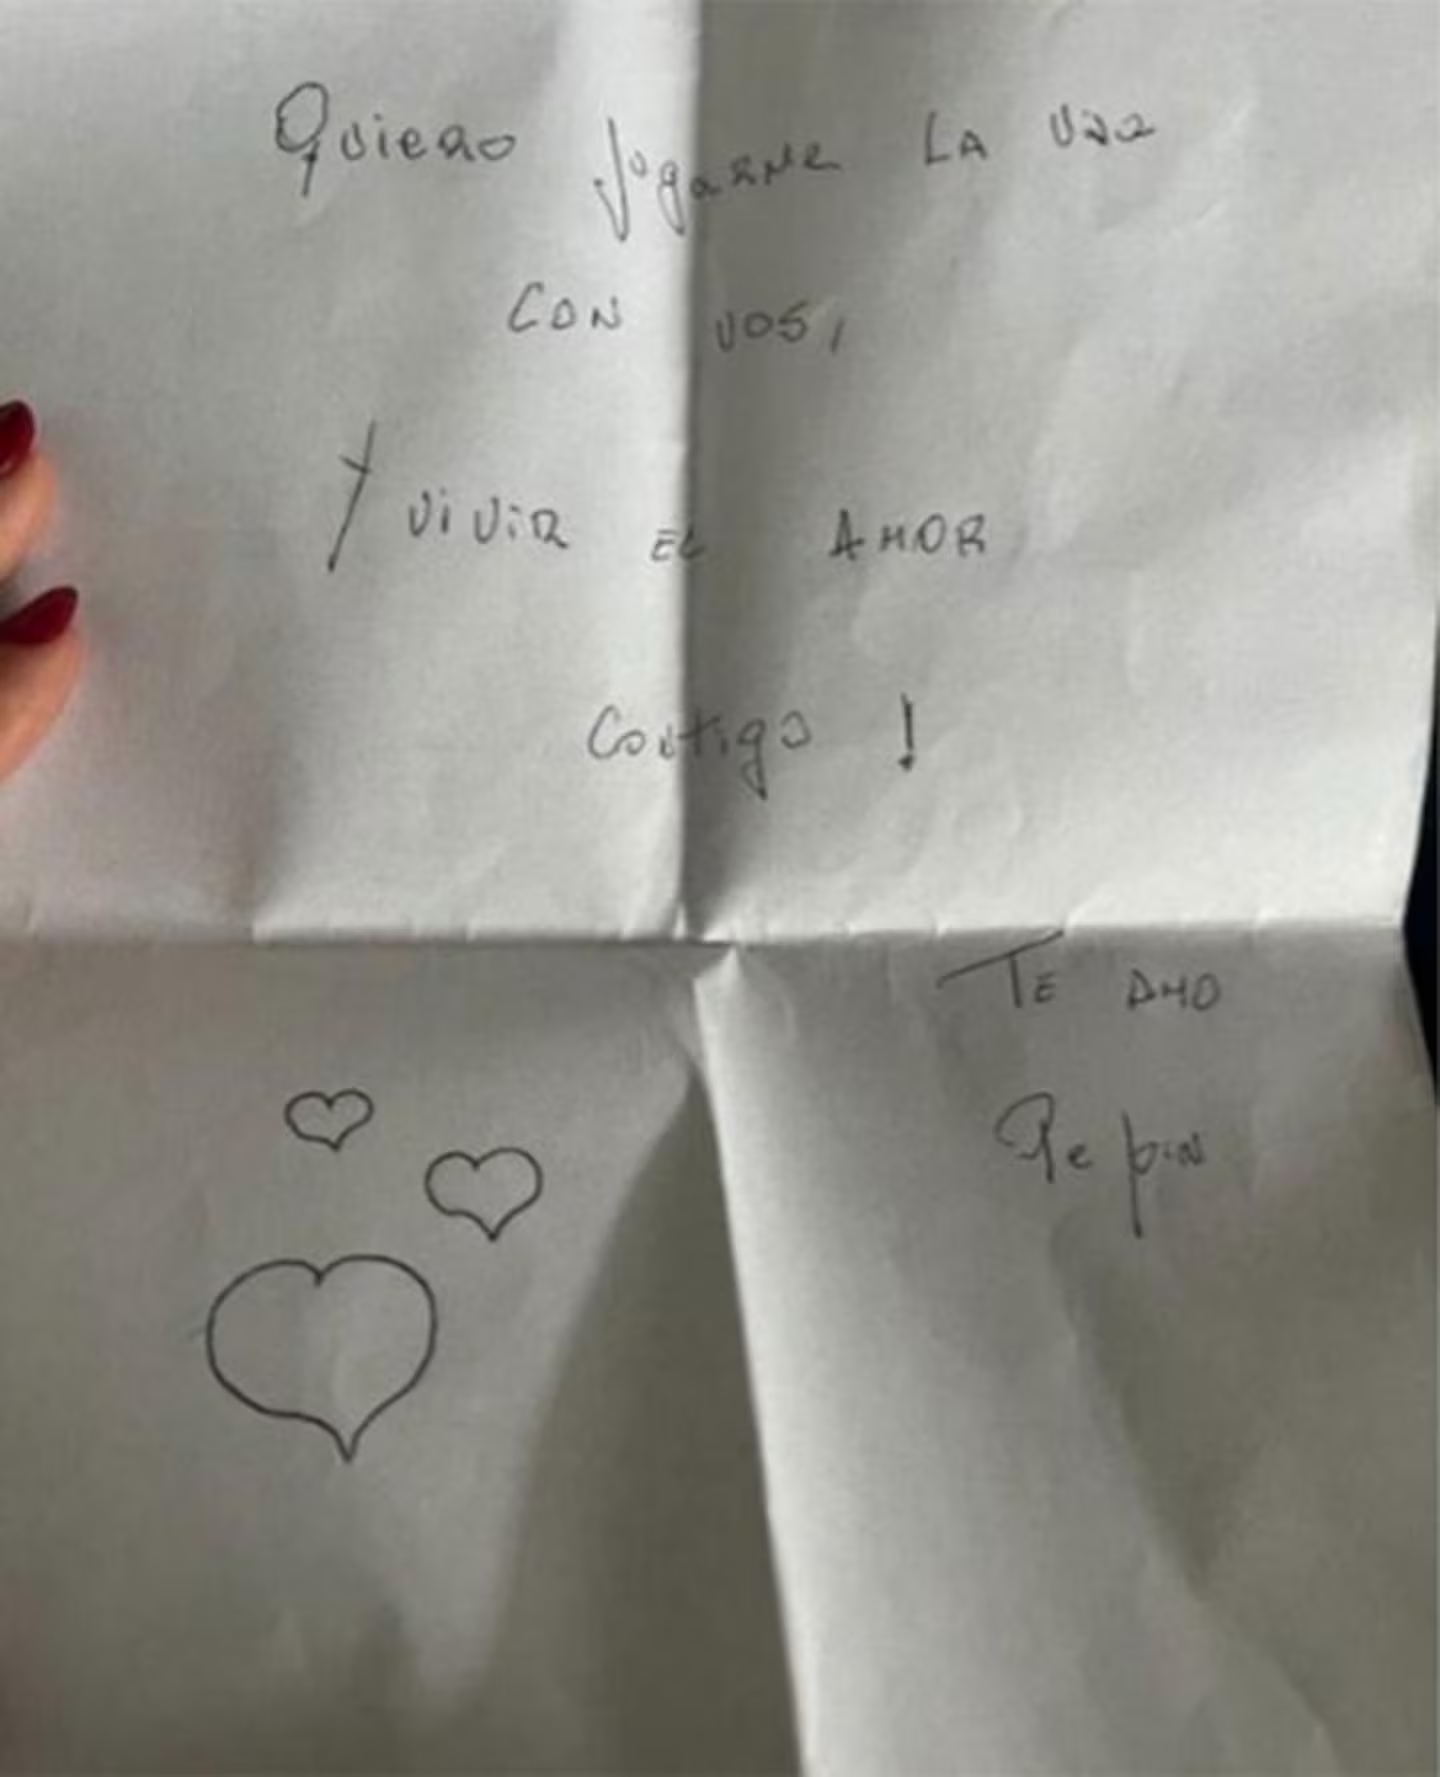 Quiero jugarme LA vida
CON vos,
Y vivir EL AMOR
Contigo !
TE AMO
Pepin